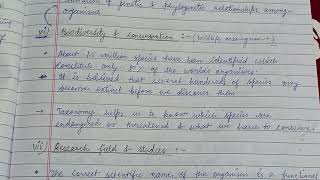 estimation of genetic & phylogenetic relationships among
organisms.
vi) Biodiversity & conservation :- (Wildlife management)
• About 1.5 million species have been identified which
constitute only 10% of the worlds organisms.
• It is believed that several hundred of species may
become extinct before we discover them.
→ Taxonomy helps us to know which species are
endangered or threatened & what we have to conserve.
vii) Research field & studies :-
• The correct scientific names of the organism is a functional